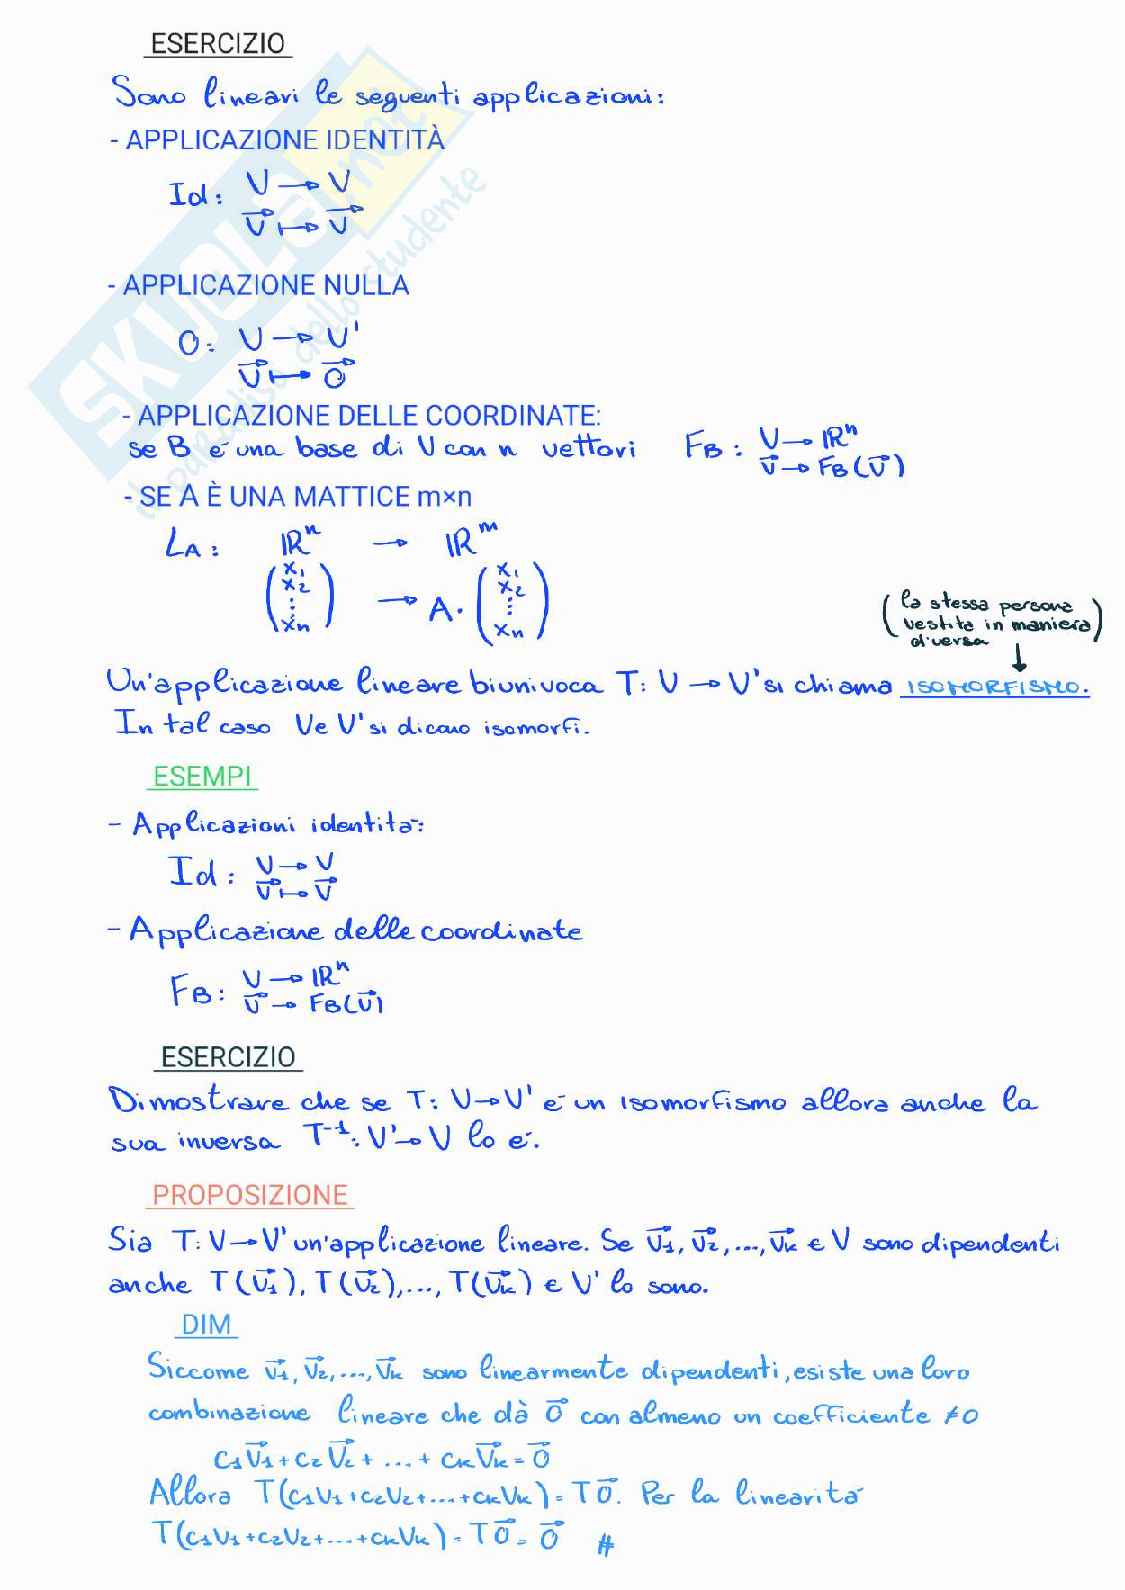 ESERCIZIO
Sono lineari le seguenti applicazioni:
- APPLICAZIONE IDENTITÀ
Id: V → V
v⃗ ↦ v⃗
- APPLICAZIONE NULLA
O: V → V'
v⃗ ↦ 0⃗
- APPLICAZIONE DELLE COORDINATE:
se B é una base di V con n vettori F_B: V → ℝⁿ
v⃗ → F_B(v⃗)
- SE A È UNA MATTICE m×n
L_A: ℝⁿ → ℝᵐ
(x₁ x₂ ⋮ xₙ) → A · (x₁ x₂ ⋮ xₙ)
(la stessa persona
vestita in maniera)
diversa
↓
Un'applicazione lineare biunivoca T: V → V' si chiama ISOMORFISMO.
In tal caso V e V' si dicono isomorfi.
ESEMPI
- Applicazioni identitá:
Id: V → V
v⃗ ↦ v⃗
- Applicazione delle coordinate
F_B: V → ℝⁿ
v⃗ → F_B(v⃗)
ESERCIZIO
Dimostrare che se T: V → V' é un isomorfismo allora anche la
sua inversa T⁻¹: V' → V lo é.
PROPOSIZIONE
Sia T: V → V' un'applicazione lineare. Se v⃗₁, v⃗₂, ..., v⃗ₖ ∈ V sono dipendenti
anche T(v⃗₁), T(v⃗₂), ..., T(v⃗ₖ) ∈ V' lo sono.
DIM
Siccome v⃗₁, v⃗₂, ..., v⃗ₖ sono linearmente dipendenti, esiste una loro
combinazione lineare che dà 0⃗ con almeno un coefficiente ≠0
c₁v⃗₁ + c₂v⃗₂ + ... + cₖv⃗ₖ = 0⃗
Allora T(c₁v₁ + c₂v₂ + ... + cₖvₖ) = T0⃗. Per la linearitá
T(c₁v₁ + c₂v₂ + ... + cₖvₖ) = T0⃗ = 0⃗ #
SKUOLA.net
il paradiso dello studente